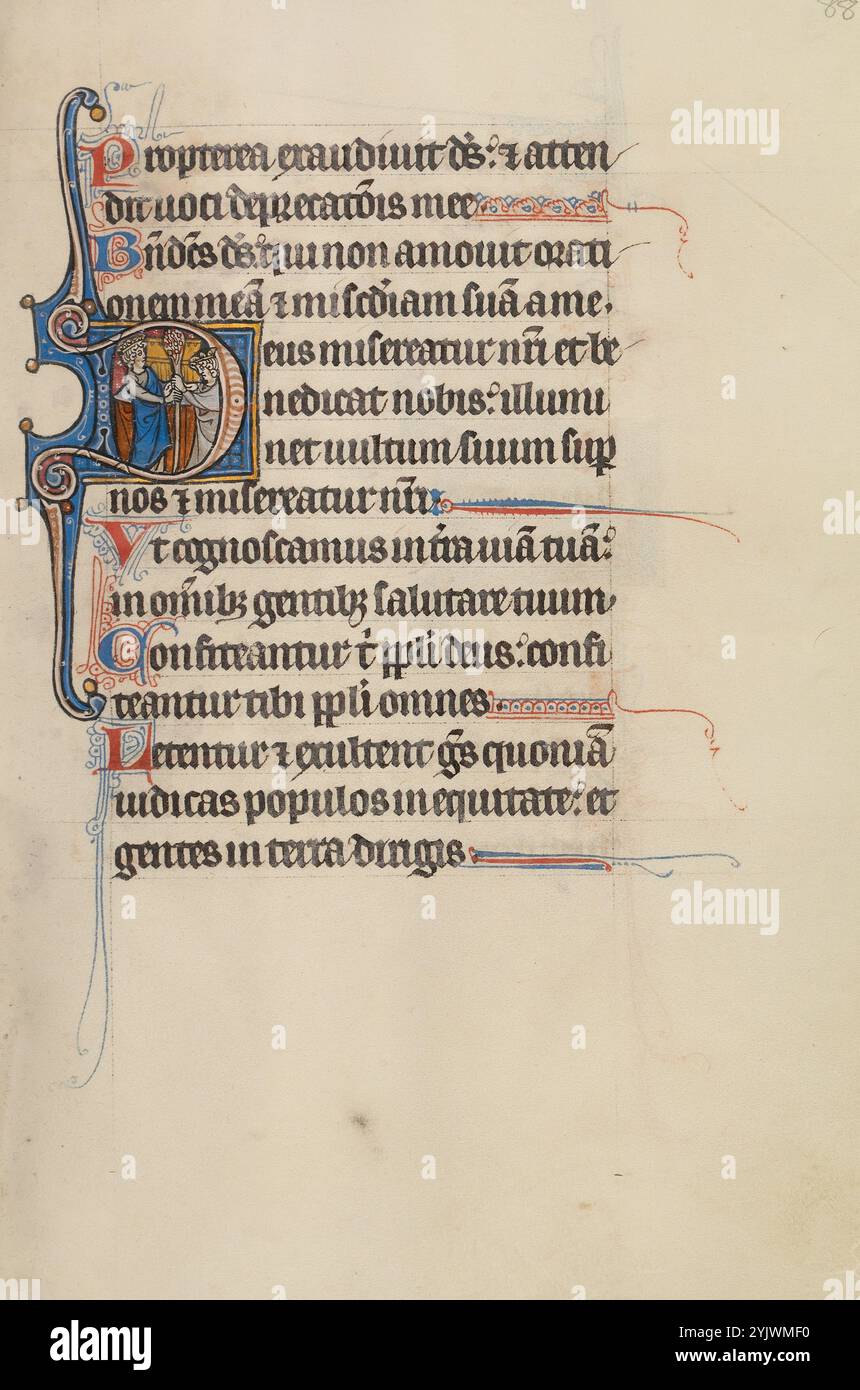 88
Propterea exaudiuit ds̄: ⁊ atten
dit uoci dep̄recatōis mee
Bn̄dc̄s ds̄: qui non amouit orati
onem meā ⁊ mis̄cdiam suā a me.
Deus misereatur nr̄i et be
nedicat nobis: illumi
net uultum suum sup
nos ⁊ misereatur nr̄i
Vt cognoscamus in tr̄a uiā tuā:
in om̄ibꝫ gentibꝫ salutare tuum
Confiteantur t̄ ppl̄i deus: confi
teantur tibi ppl̄i omnes
Letentur ⁊ exultent gn̄s quoniā
iudicas populos in equitate: et
gentes in terra dirigis
alamy
Image ID: 2YJWMF0
www.alamy.com